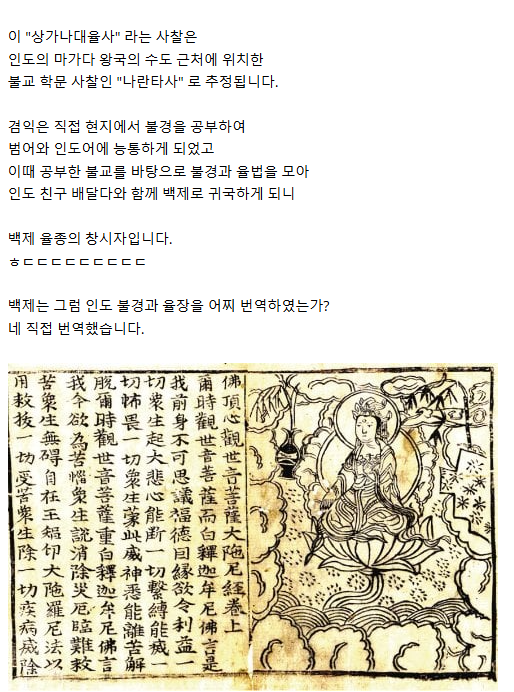 이 "상가나대율사" 라는 사찰은
인도의 마가다 왕국의 수도 근처에 위치한
불교 학문 사찰인 "나란타사" 로 추정됩니다.
겸익은 직접 현지에서 불경을 공부하여
범어와 인도어에 능통하게 되었고
이때 공부한 불교를 바탕으로 불경과 율법을 모아
인도 친구 배달다와 함께 백제로 귀국하게 되니
백제 율종의 창시자입니다.
ㅎㄷㄷㄷㄷㄷㄷㄷㄷㄷ
백제는 그럼 인도 불경과 율장을 어찌 번역하였는가?
네 직접 번역했습니다.
佛頂心觀世音菩薩大陁尼經卷上
爾時觀世音菩薩而白釋迦牟尼佛言是
我前身不可思議福德因縁欲令利益一
切衆生起大悲心能斷一切繫縛能滅一
切怖畏一切衆生蒙此威神悉能離苦解
脫爾時觀世音菩薩重白釋迦牟尼佛言
我今欲為苦惱衆生說消除灾厄臨難救
苦衆生無碍自在王智印大陁羅尼法以
用救拔一切受苦衆生除一切疾病滅除